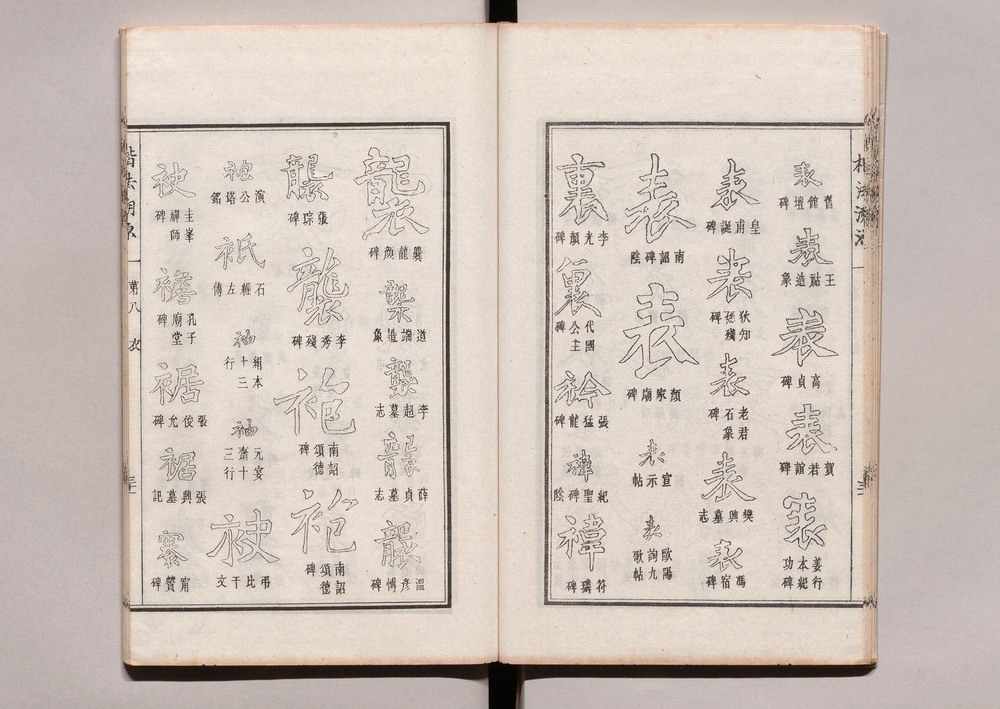 表
舊館壇碑
表
王祜造象
表
高貞碑
表
賀若誼碑
表
姜行本紀功碑
表
皇甫誕碑
表
狄知愻殘碑
表
老君石象碑
表
樊興墓志
表
馮宿碑
表
南詔碑陰
表
顏家廟碑
表
宣示帖
表
歐陽詢九歌帖
裏
李光顏碑
裏
代國公主碑
衿
張猛龍碑
褘
紀聖碑陰
褘
符璘碑
楷法溯源
襲
爨龍顏碑
襲
道端造象
襲
李超墓志
襲
薛貞墓志
襲
溫彥博碑
襲
張琮碑
襲
李秀殘碑
袍
南詔德頌碑
袍
南詔德頌碑
袍
演公塔銘
袛
石經左傳
袖
絹本十三行
袖
元宴齋十三行
弔比干文
圭峯禪師碑
襜
孔子廟堂碑
裾
張俊允碑
裾
張興墓記
褰
甯贙碑
楷法溯源
第八
衣